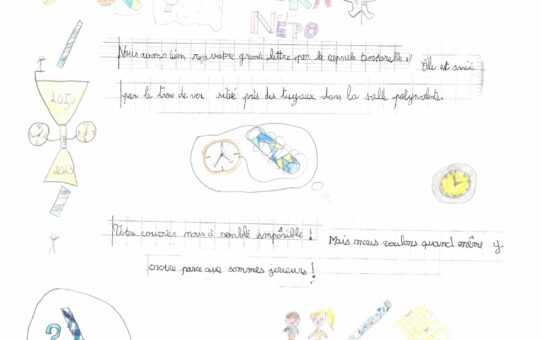 NÉPO
Nous avons bien reçu votre grande lettre par la capsule temporelle! Elle est arrivé
par le trou de ver situé près des tuyaux dans la salle polyvalente.
2050
2023
Votre courrier nous a semblé impossible! Mais nous voulons quand même y
croire parce que sommes joueurs!
?